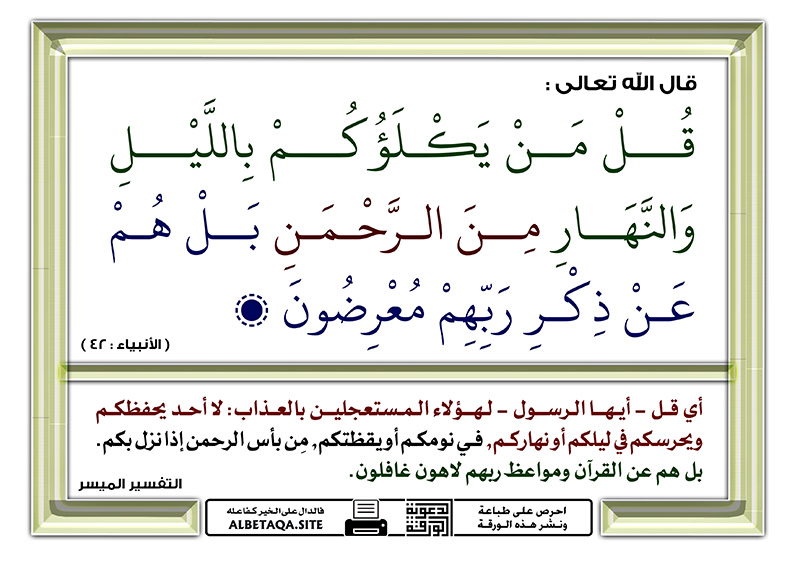 قال الله تعالى :
قُلْ مَنْ يَكْلَؤُكُمْ بِاللَّيْلِ
وَالنَّهَارِ مِنَ الرَّحْمَنِ بَلْ هُمْ
عَنْ ذِكْرِ رَبِّهِمْ مُعْرِضُونَ
( الأنبياء : ٤٢ )
أي قل - أيها الرسول - لهؤلاء المستعجلين بالعذاب: لا أحد يحفظكم
ويحرسكم في ليلكم أو نهاركم, في نومكم أو يقظتكم, مِن بأس الرحمن إذا نزل بكم.
بل هم عن القرآن ومواعظ ربهم لاهون غافلون.
التفسير الميسر
احرص على طباعة
ونشر هذه الورقة
الورقة
الدعوية
فالدال على الخير كفاعله
ALBETAQA.SITE